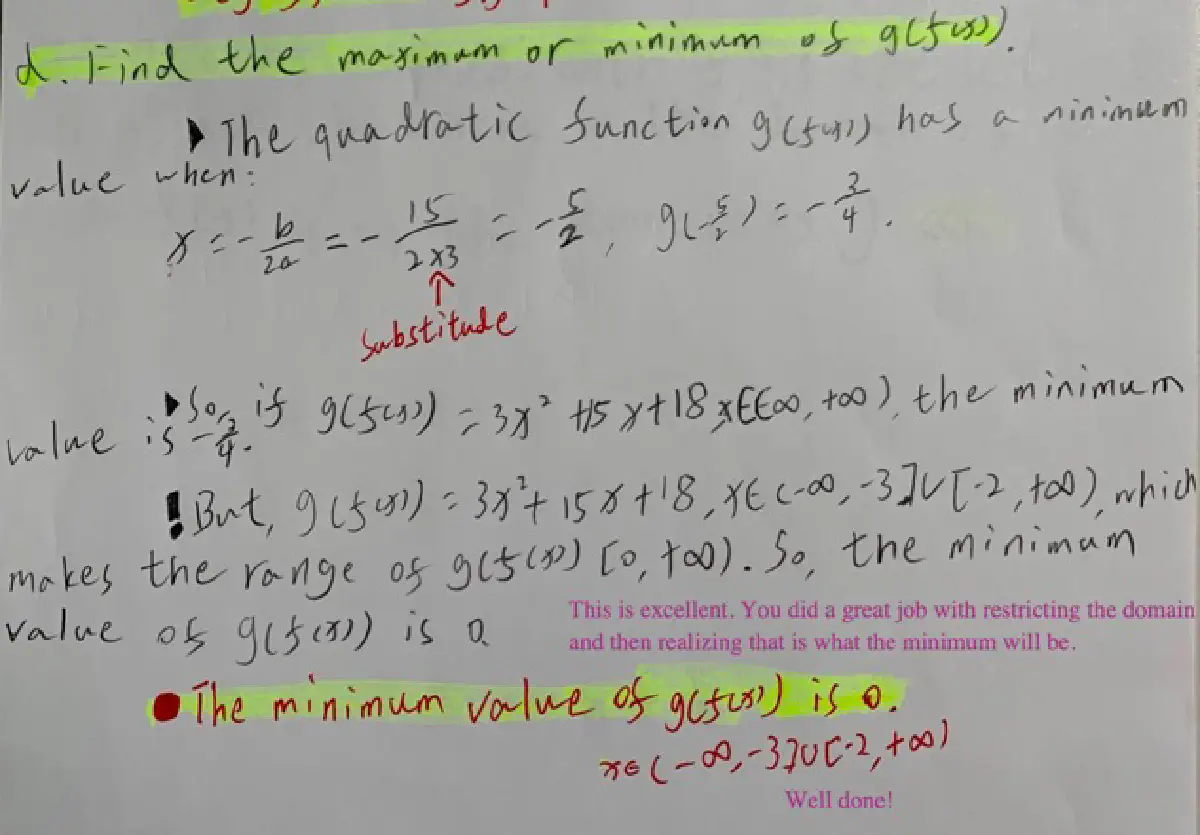 d. Find the maximum or minimum of g(f(x)).
▶ The quadratic function g(f(x)) has a minimum
value when:
x = -b/2a = -15/2×3 = -5/2, g(-5/2) = -3/4.
↑
Substitude
▶ So, if g(f(x)) = 3x² + 15x + 18 x∈(-∞, +∞), the minimum
value is -3/4.
! But, g(f(x)) = 3x² + 15x + 18, x∈(-∞, -3]∪[-2, +∞), which
makes the range of g(f(x)) [0, +∞). So, the minimum
value of g(f(x)) is 0.
This is excellent. You did a great job with restricting the domain
and then realizing that is what the minimum will be.
● The minimum value of g(f(x)) is 0.
x∈(-∞, -3]∪[-2, +∞)
Well done!